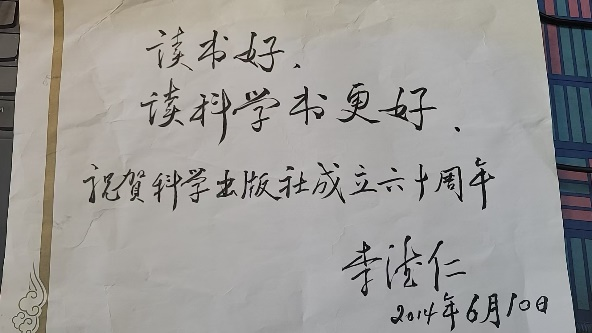 读书好、
读科学书更好、
祝贺科学出版社成立六十周年
李德仁
2014年6月10日